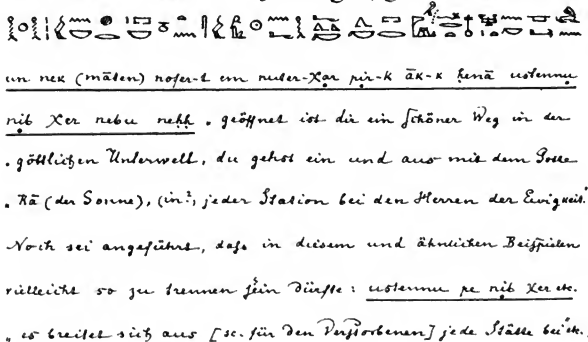 un nek (māten) nofer-t em nuter-χar pir-k āk-k ḥenā ustennu
nib χer nebu neḥḥ „ geöffnet ist dir ein schöner Weg in der
„ göttlichen Unterwelt, du gehst ein und aus mit dem Gotte
„ Rā (der Sonne), (in?) jeder Station bei den Herren der Ewigkeit."
Noch sei angeführt, daſs in diesem und ähnlichen Beiſpielen
vielleicht so zu trennen sein dürfte: ustennu pe nib χer etc.
„ es breitet sich aus [sc. für den Verstorbenen] jede Stätte bei etc.